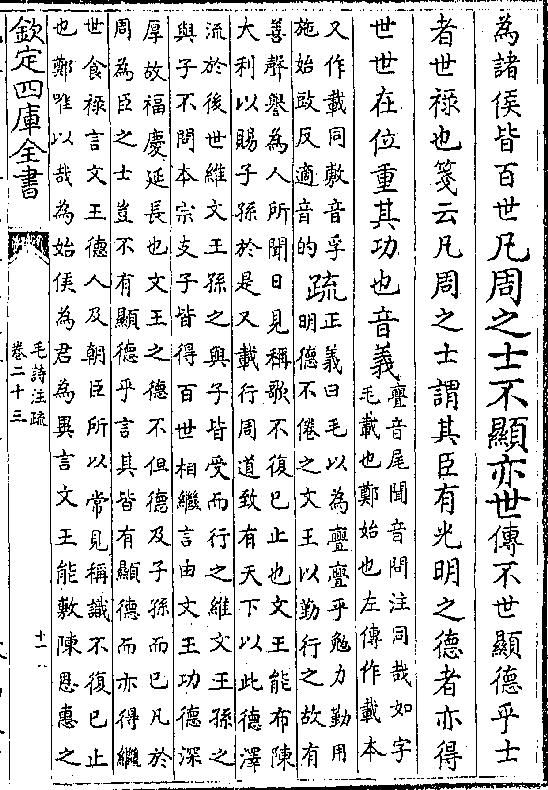 為諸侯皆百世凡周之士不顯亦世傳不世顯德乎士
者世祿也箋云凡周之士謂其臣有光明之德者亦得
世世在位重其功也音義
亹音尾聞音問注同哉如字
毛載也鄭始也左傳作載本
又作載同敷音孚
施始豉反適音的
疏
正義曰毛以為亹亹乎勉力勤用
明德不倦之文王以勤行之故有
善聲譽為人所聞日見稱歌不復已止也文王能布陳
大利以賜子孫於是又載行周道致有天下以此德澤
流於後世維文王孫之與子皆受而行之維文王孫之
與子不問本宗支子皆得百世相繼言由文王功德深
厚故福慶延長也文王之德不但德及子孫而已凡於
周為臣之士豈不有顯德乎言其皆有顯德而亦得繼
世食祿言文王德人及朝臣所以常見稱識不復已止
也鄭唯以哉為始侯為君為異言文王能敷陳恩惠之
欽定四庫全書
毛詩注疏
卷二十三
十一